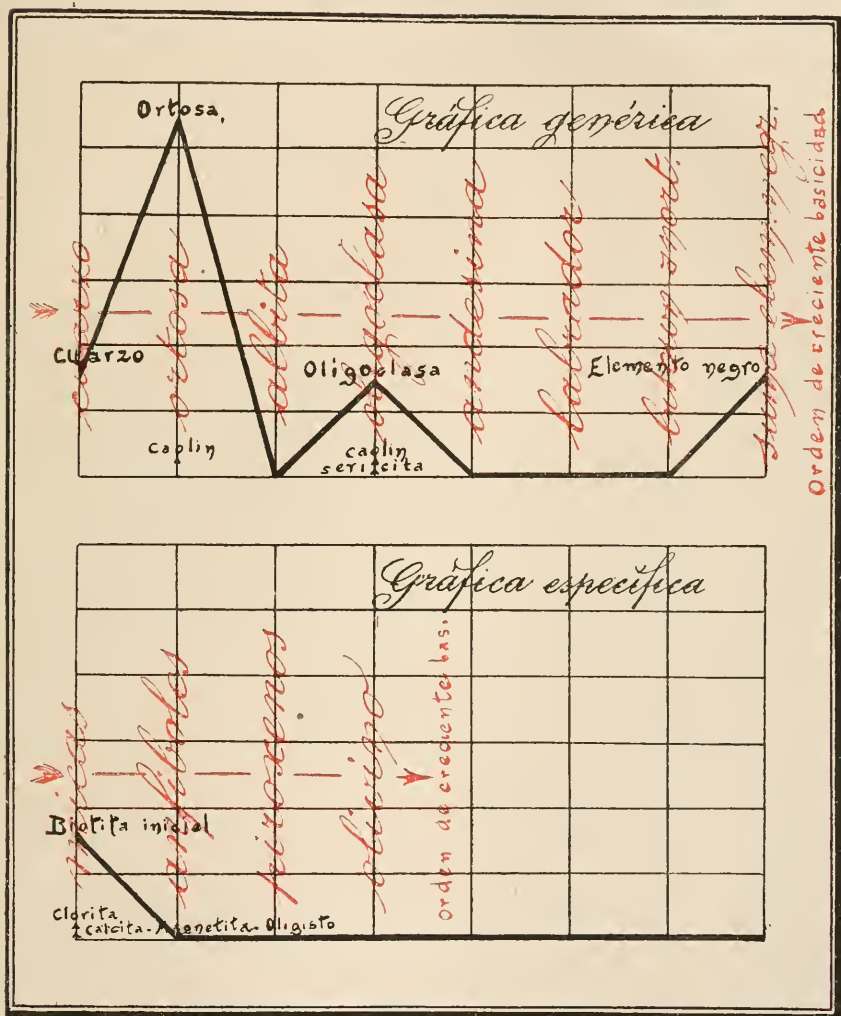 Gráfica genérica
Ortosa.
Cuarzo
Oligoclasa
Elemento negro
Caolin
caolin
sericita
cuarzo
ortosa
albita
oligoclasa
andesina
labrador
Orden de creciente basicidad
Gráfica específica
Biotita inicial
Clorita
Calcita-Magnetita-Oligisto
micas
anfiboles
piroxenos
olivino
orden de creciente bas.